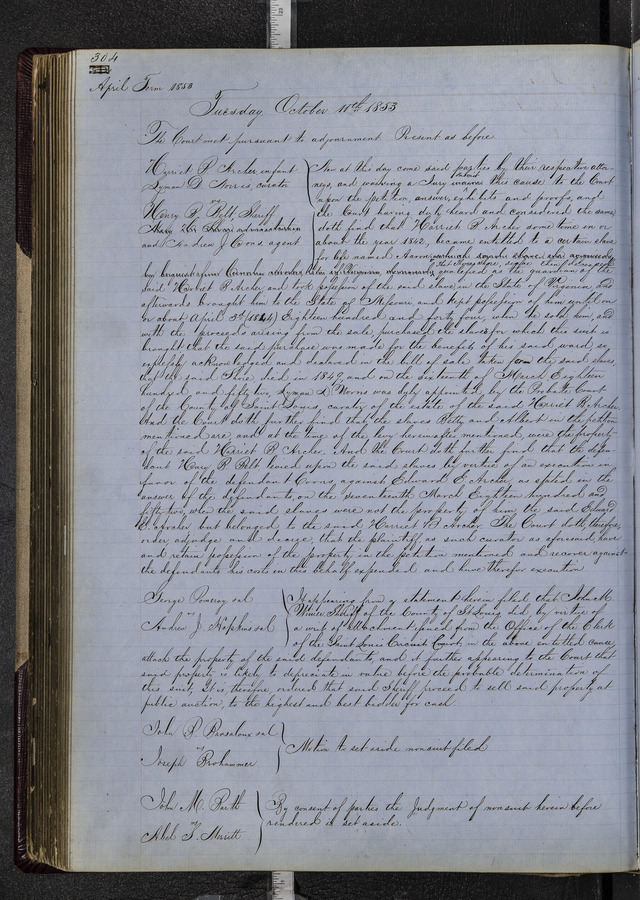 304
April Term 1853
Tuesday October 11th 1853
The Court met pursuant to adjournment Present as before
Harriet P Archer infant
Lyman D Norris, curator
vs
Henry B Belt, Sheriff
and Andrew J Coons agent
Now at this day come said parties by their respective attor
neys, and waiving a Jury submit this cause to the Court
upon the petition, answer, exhibits and proofs, and
the Court having duly heard and considered the same
doth find that Harriet P Archer some time in or
about the year 1842, became entitled to a certain slave
for life named Aaron
said Harriet P Archer and took possession of the said slave in the State of Virginia and
afterwards brought him to the State of Missouri and kept possession of him until on
or about April 3d (1844) Eighteen hundred and forty four, when he sold him, and
with the proceeds arising from the sale, purchased the slaves for which this suit is
brought that the said purchase was made for the benefit of his said ward, so
expressly acknowledged and declared in the bill of sale taken for the said slaves
that the said died in 1849, and on the sixteenth of March Eighteen
hundred and fifty two, Lyman D Norris was duly appointed by the Probate Court
of the County of Saint Louis, curator of the estate of the said Harriet P. Archer.
And the Court doth further find that the slaves Betty and Albert in the petition
mentioned are, and at the time of the levy hereinafter mentioned, were the property
of the said Harriet P Archer. And the Court doth further find that the defen
dant Henry B Belt levied upon the said slaves by virtue of an execution in
favor of the defendant Coons, against Edward E Archer, as stated in the
answer of the defendants, on the seventeenth March Eighteen hundred and
fifty two, when the said slaves were not the property of him, the said Edward
E Archer but belonged to the said Harriet P Archer The Court doth, therefore,
order, adjudge and decree, that the plaintiff, as such curator as aforesaid, have
and retain possession of the property in the petition mentioned and recover against
the defendants his costs in this behalf expended and have therefor execution
George Pomeroy et al
vs
Andrew J Hopkins et al
It appearing from a statement herein filed that John M
Wimer, Sheriff of the County of St Louis did, by virtue of
a writ of attachment issued from the Office of the Clerk
of the Saint Louis Circuit Court in the above entitled cause
attach the property of the said defendants, and it further appearing to the Court that
said property is likely to depreciate in value before the probable determination of
this suit, It is, therefore ordered that said Sheriff proceed to sell said property at
public auction, to the highest and best bidder for cash
John P et al
vs
Joseph
Motion to set aside nonsuit filed
John M.
vs
Abel T. Merritt
By consent of parties the Judgment of nonsuit herein before
rendered is set aside.